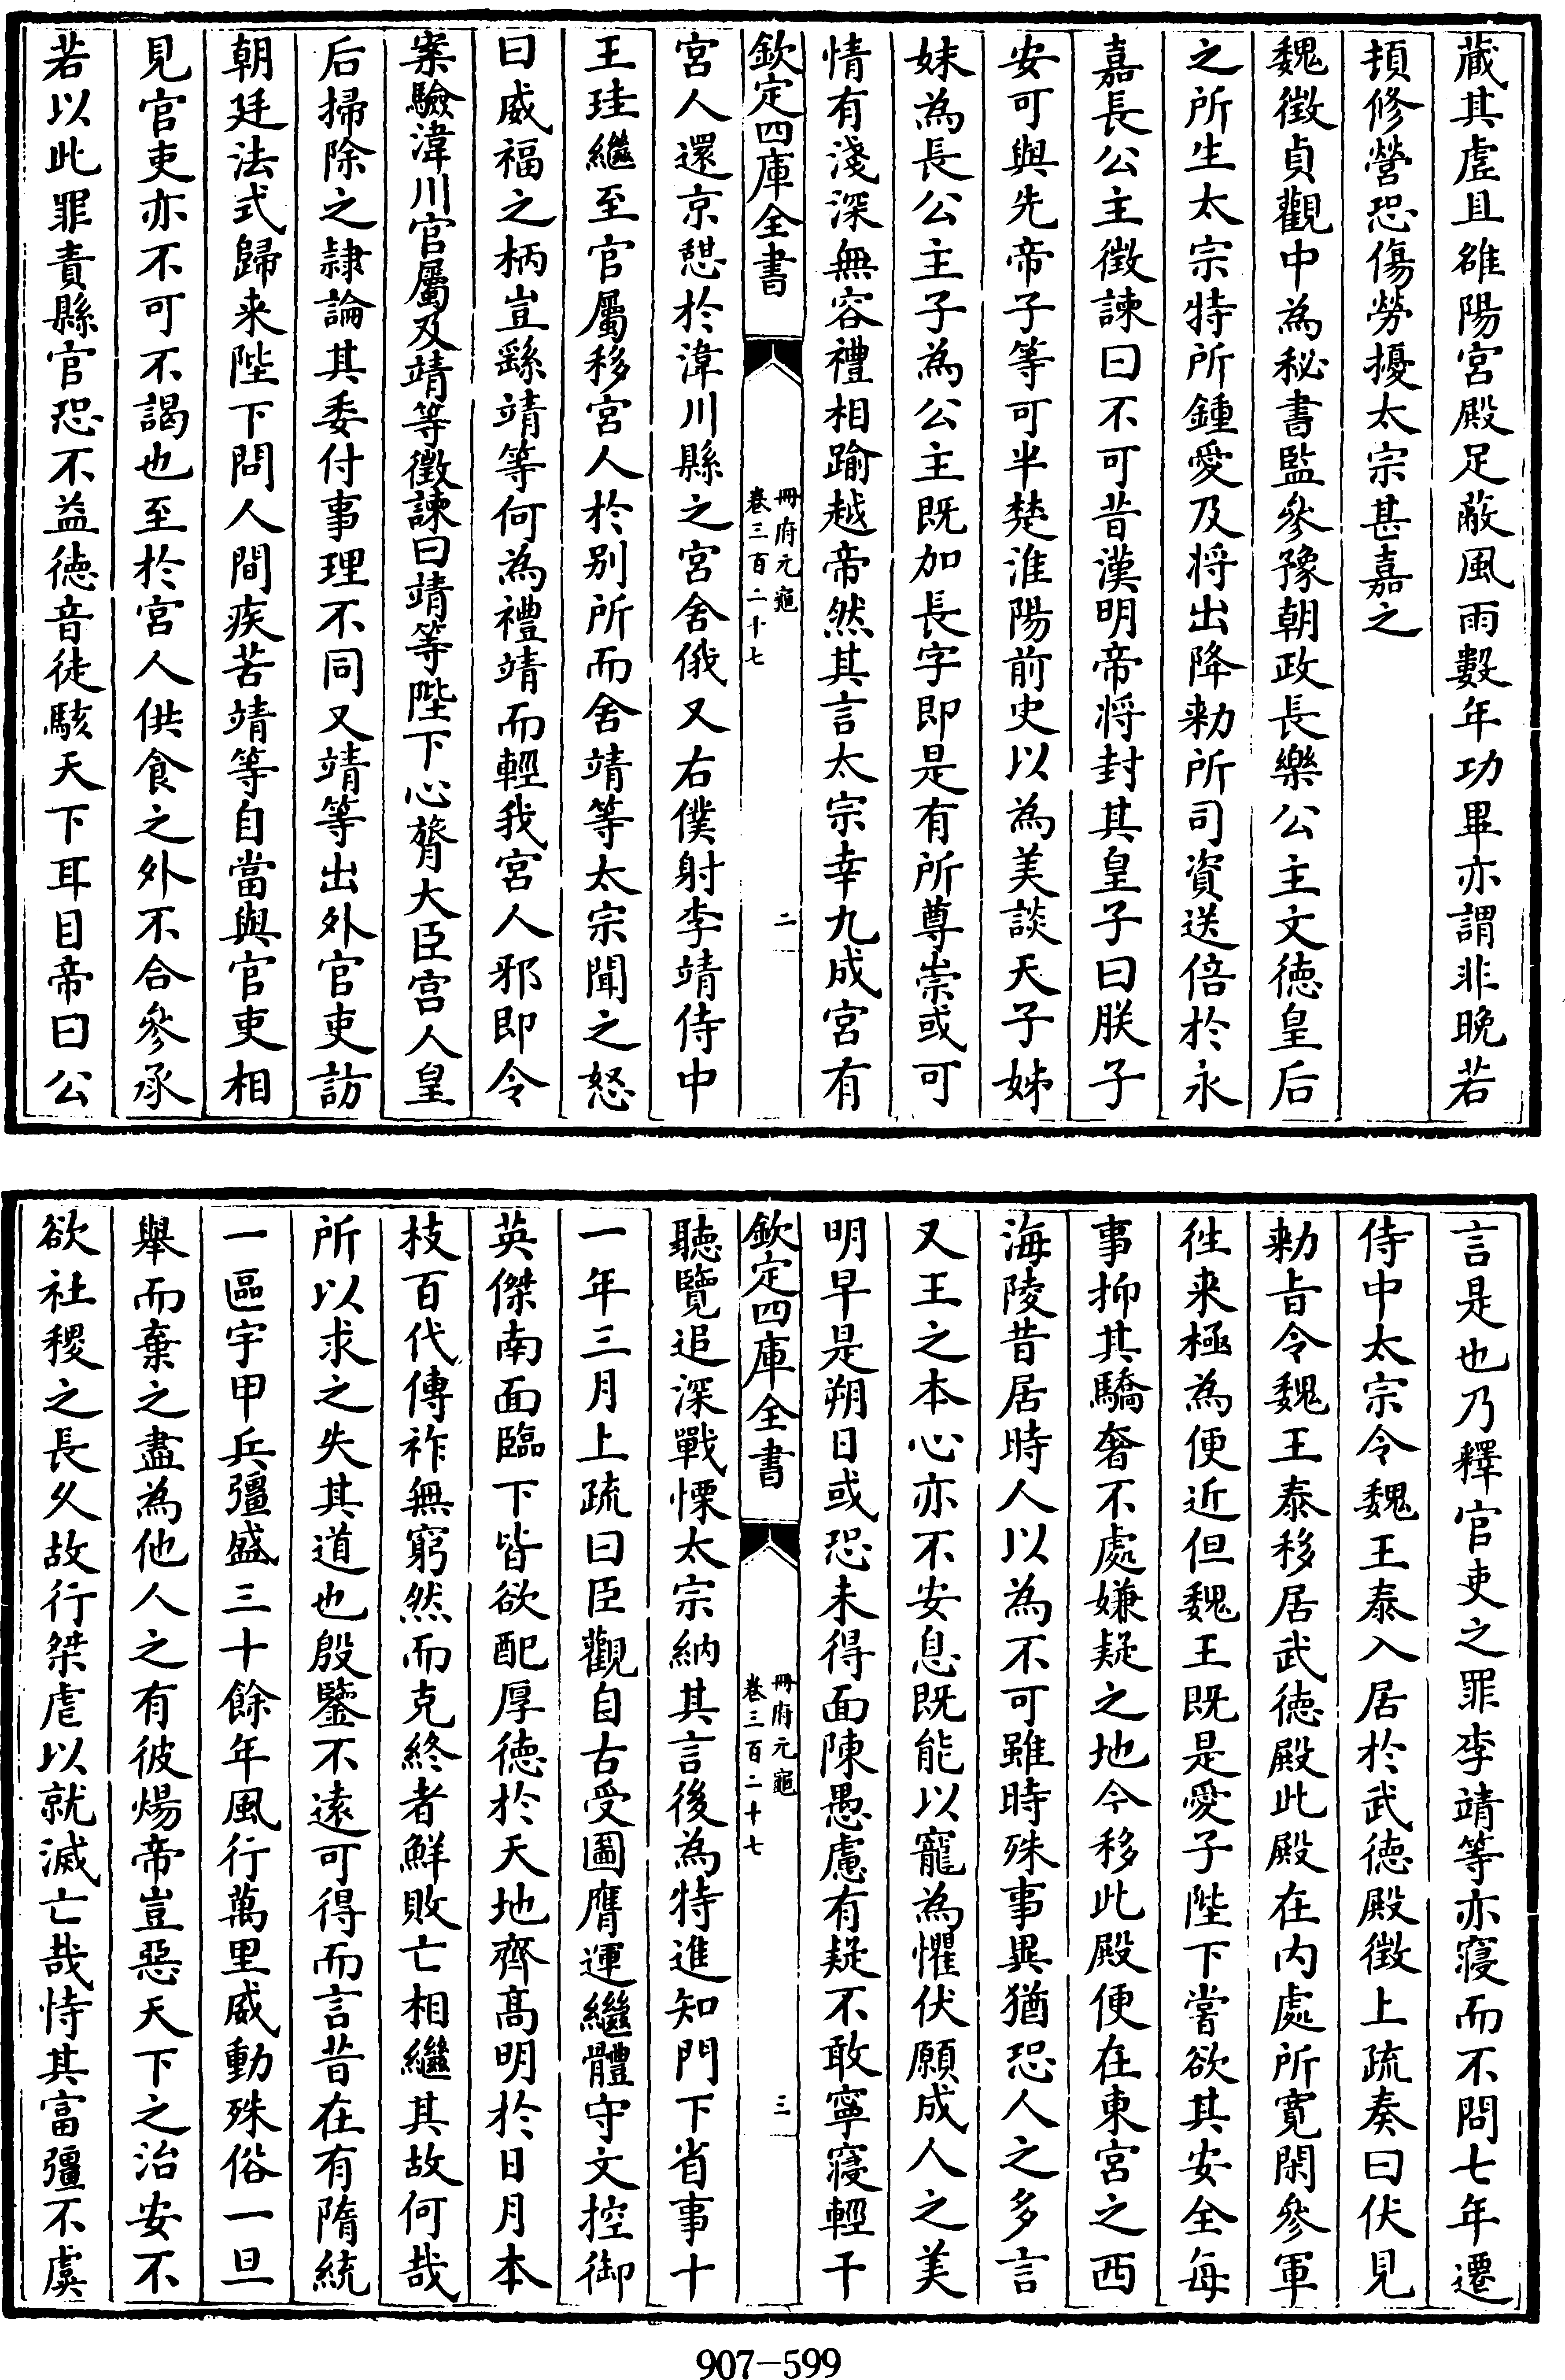 蕆其虛且雒陽宮殿足蔽風雨數年功畢亦謂非晩若
頓修營恐傷勞擾太宗甚嘉之
魏徵貞觀中為秘書監參豫朝政長樂公主文德皇后
之所生太宗特所鍾愛及將出降勑所司資送倍於永
嘉長公主徵諫曰不可昔漢明帝將封其皇子曰朕子
安可與先帝子等可半楚淮陽前史以為美談天子姊
妹為長公主子為公主既加長字即是有所尊崇或可
情有淺深無容禮相踰越帝然其言太宗幸九成宮有
欽定四庫全書
冊府元龜
卷三百二十七
二
宮人還京憇於湋川縣之宮舍俄又右僕射李靖侍中
王珪繼至官屬移宮人於别所而舍靖等太宗聞之怒
曰威福之柄豈繇靖等何為禮靖而輕我宮人邪即令
案驗湋川官屬及靖等徵諫曰靖等陛下心膂大臣宮人皇
后掃除之隷論其委付事理不同又靖等出外官吏訪
朝廷法式歸来陛下問人間疾苦靖等自當與官吏相
見官吏亦不可不謁也至於宮人供食之外不合參承
若以此罪責縣官恐不益德音徒駭天下耳目帝曰公
言是也乃釋官吏之罪李靖等亦寢而不問七年遷
侍中太宗令魏王泰入居於武德殿徵上疏奏曰伏見
勑旨令魏王泰移居武德殿此殿在内處所寛閑參軍
徃来極為便近但魏王既是愛子陛下嘗欲其安全每
事抑其驕奢不處嫌疑之地今移此殿便在東宮之西
海陵昔居時人以為不可雖時殊事異猶恐人之多言
又王之本心亦不安息既能以寵為懼伏願成人之美
明早是朔日或恐未得面陳愚慮有疑不敢寧寢輕干
欽定四庫全書
冊府元龜
卷三百二十七
三
聽覽追深戰慄太宗納其言後為特進知門下省事十
一年三月上疏曰臣觀自古受圖膺運繼體守文控御
英傑南面臨下皆欲配厚德於天地齊髙明於日月本
枝百代傳祚無窮然而克終者鮮敗亡相繼其故何哉
所以求之失其道也殷鑒不遠可得而言昔在有隋統
一區宇甲兵彊盛三十餘年風行萬里威動殊俗一旦
舉而棄之盡為他人之有彼煬帝豈惡天下之治安不
欲社稷之長久故行桀虐以就滅亡哉恃其富彊不虞
907-599